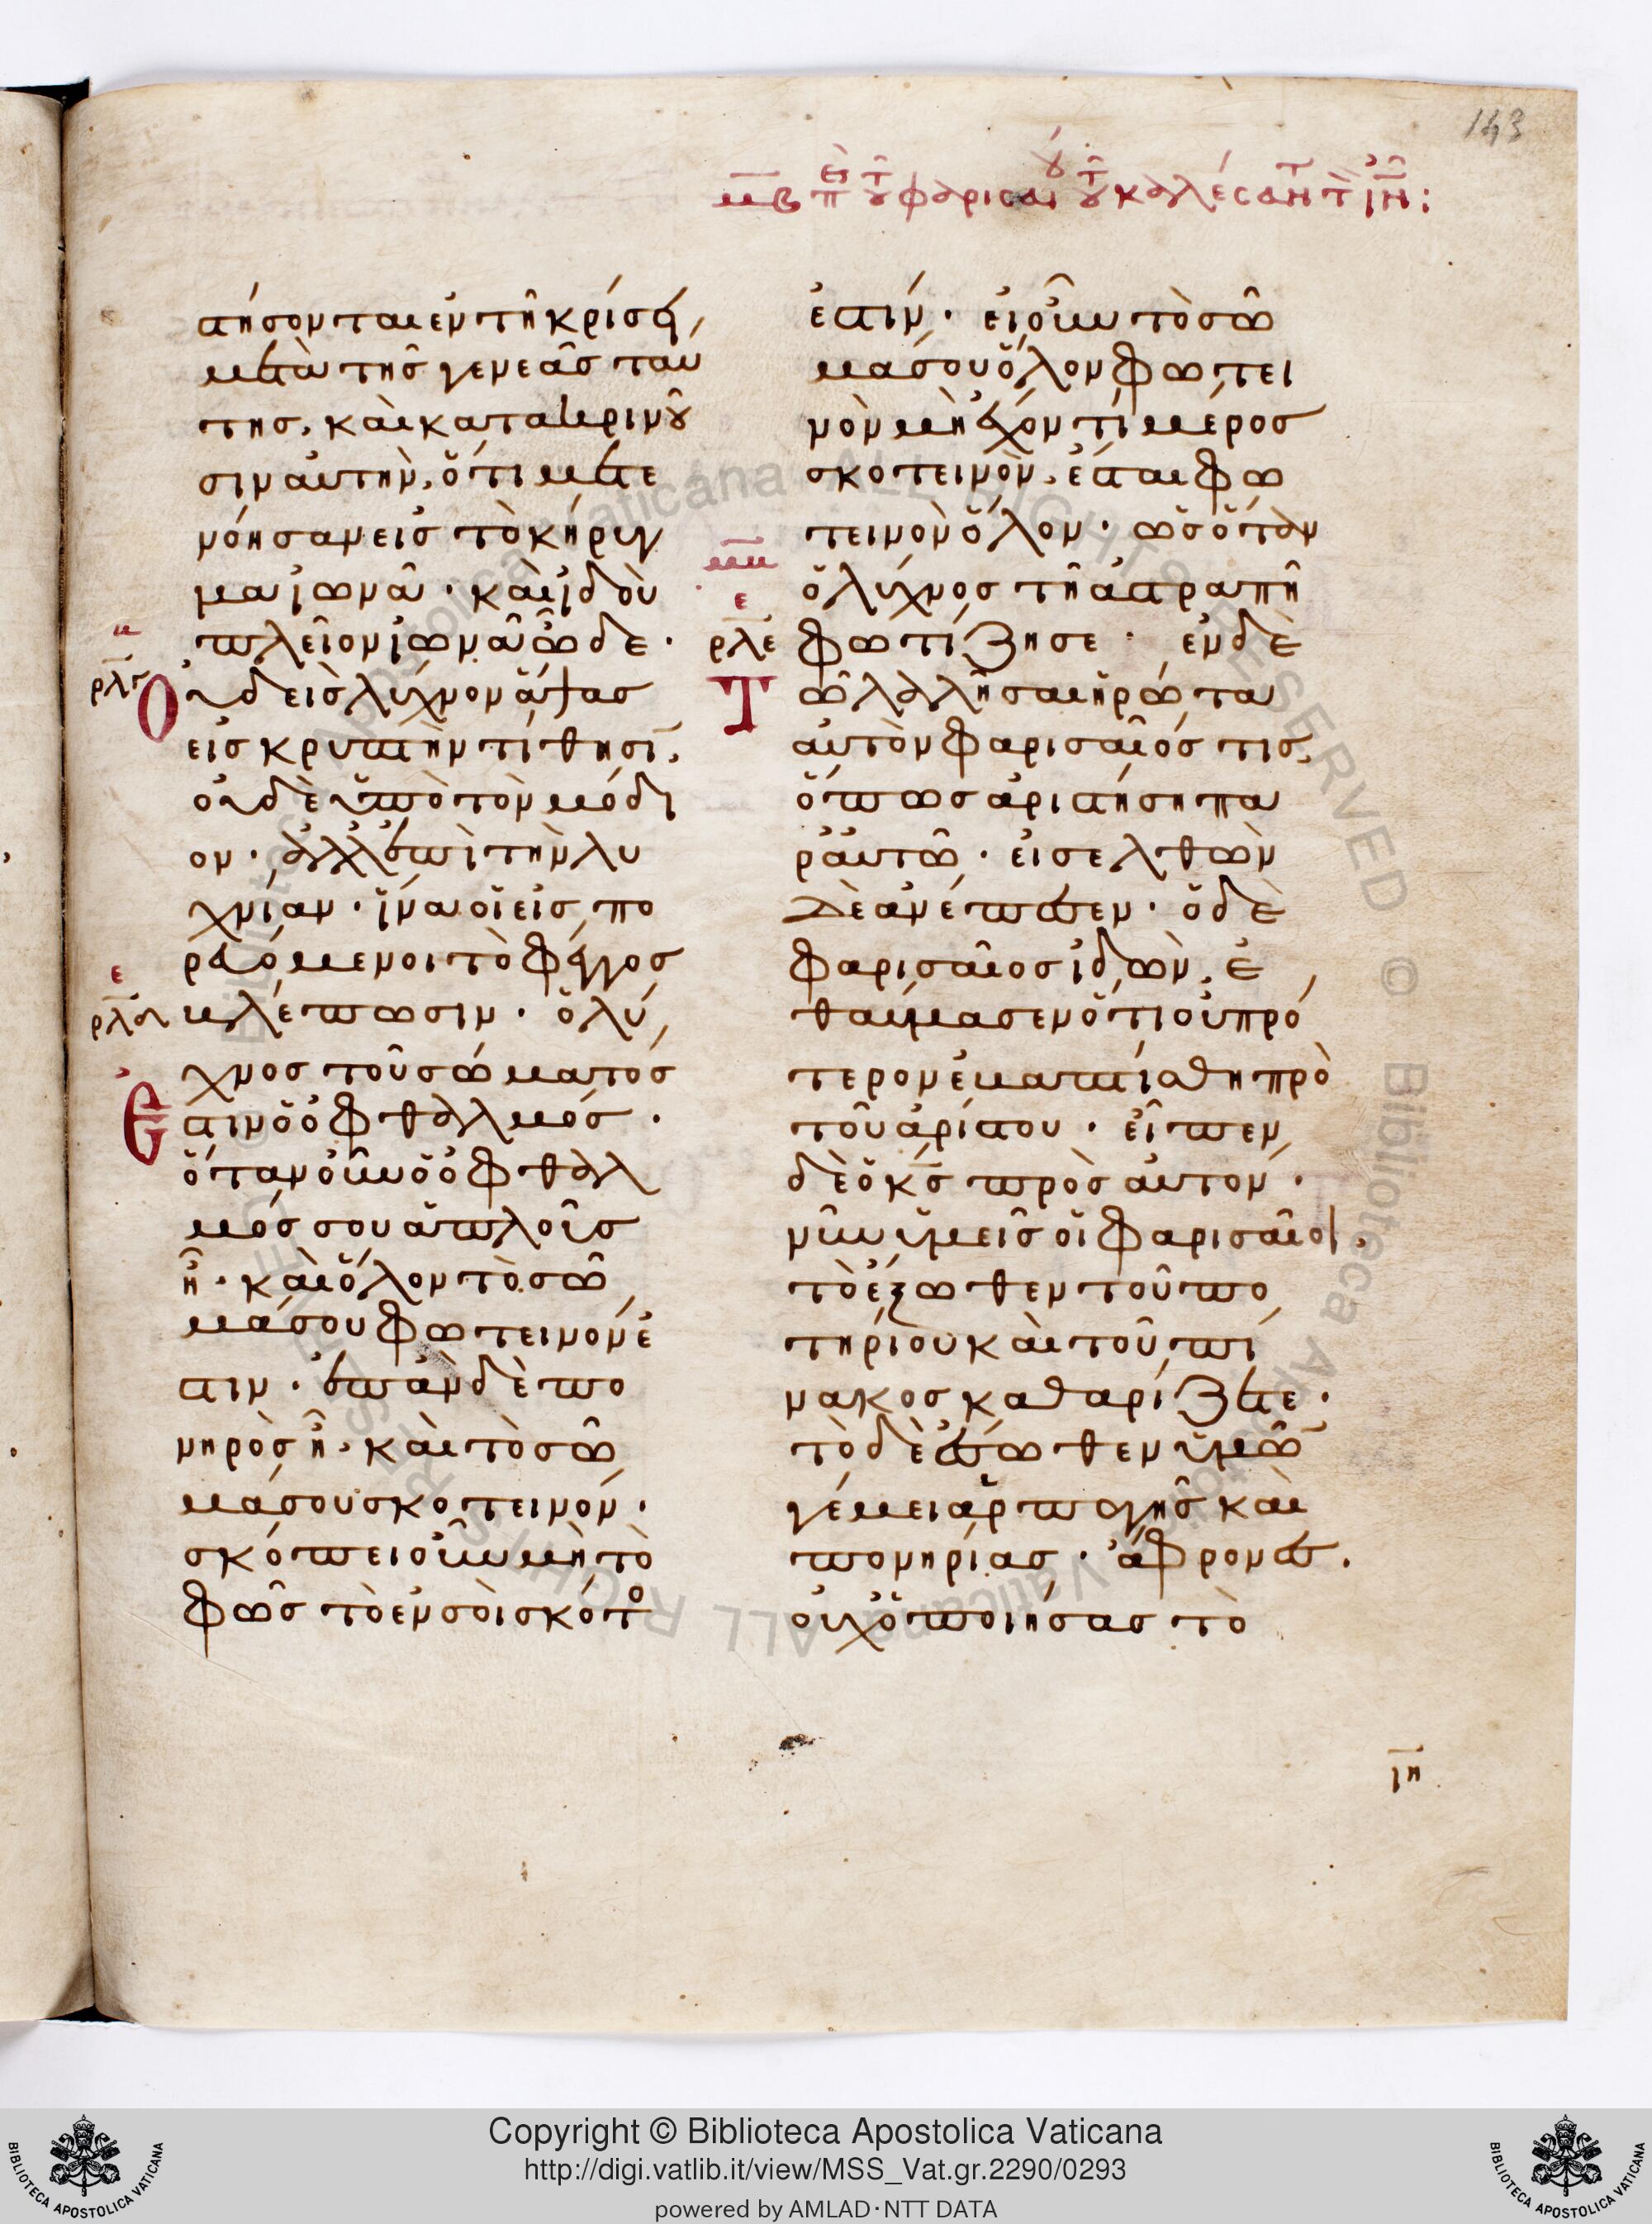 143
μβ περὶ τοῦ φαρισαίου τοῦ καλέσαντ τὸν ιν:
στήσονται ἐν τῆ κρίσει,
μετὰ τῆς γενεᾶς ταύ
της, καὶ κατακρινοῦ
σιν αὐτὴν, ὅτι μετε
νόησαν εἰς τὸ κήρυγ
μα ἰωνᾶ · καὶ ἰδοὺ
πλεῖον ἰωνᾶ ὧδε ·
Οὐδεὶς λύχνον ἅψας
εἰς κρυπτὴν τίθησῖ,
οὐδὲ ὑπὸ τὸν μόδι
ον · ἀλλ' ἐπὶ τὴν λυ
χνίαν · ἵνα οἱ εἰσπο
ρευόμενοι τὸ φέγγος
βλέπωσιν · ὁ λύ
χνος τοῦ σώματός
Ἐστιν ὁ ὀφθαλμός ·
ὅταν οὖν ὁ ὀφθαλ
μός σου ἁπλοῦς
ἦ · καὶ ὅλον τὸ σῶ
μά σου φωτεινόν ἐ
στιν · ἐπὰν δὲ πο
νηρὸς ἦ · καὶ τὸ σῶ
μά σου σκοτεινόν ·
σκόπει οὖν μὴ τὸ
φῶς τὸ ἐν σοὶ σκότο
ἐστίν · εἰ οὖν τὸ σῶ
μά σου ὅλον φωτει
νὸν μὴ ἔχον τί μέρος
σκοτεινὸν, ἔσται φω
τεινὸν ὅλον · ὡς ὅταν
ὁ λύχνος τῆ ἀστραπῆ
φωτίζη σε · ἐν δὲ
Τῶ λαλῆσαι ἠρώτα
αὐτὸν φαρισαῖός τις,
ὅπως ἀριστήση πα
ρ' αὐτῶ · εἰσελθὼν
δὲ ἀνέπεσεν · ὁ δὲ
φαρισαῖος ἰδὼν, ἐ
θαύμασεν ὅτι οὐ πρό
τερον ἐβαπτίσθη πρὸ
τοῦ ἀρίστου · εἶπεν
δὲ ὁ κς πρὸς αὐτόν ·
νῦν ὑμεῖς οἱ φαρισαῖοι,
τὸ ἔξωθεν τοῦ πο
τηρίου καὶ τοῦ πί
νακος καθαρίζετε ·
τὸ δὲ ἔσωθεν ὑμῶ
γέμει ἁρπαγῆς καὶ
πονηρίας · ἄφρονες.
οὐχ ὁ ποιήσας τὸ
ρλς
ρλδ
μη
ε
ρλε
ιη
Copyright © Biblioteca Apostolica Vaticana
http://digi.vatlib.it/view/MSS_Vat.gr.2290/0293
powered by AMLAD·NTT DATA
BIBLIOTECA APOSTOLICA VATICANA
BIBLIOTECA APOSTOLICA VATICANA